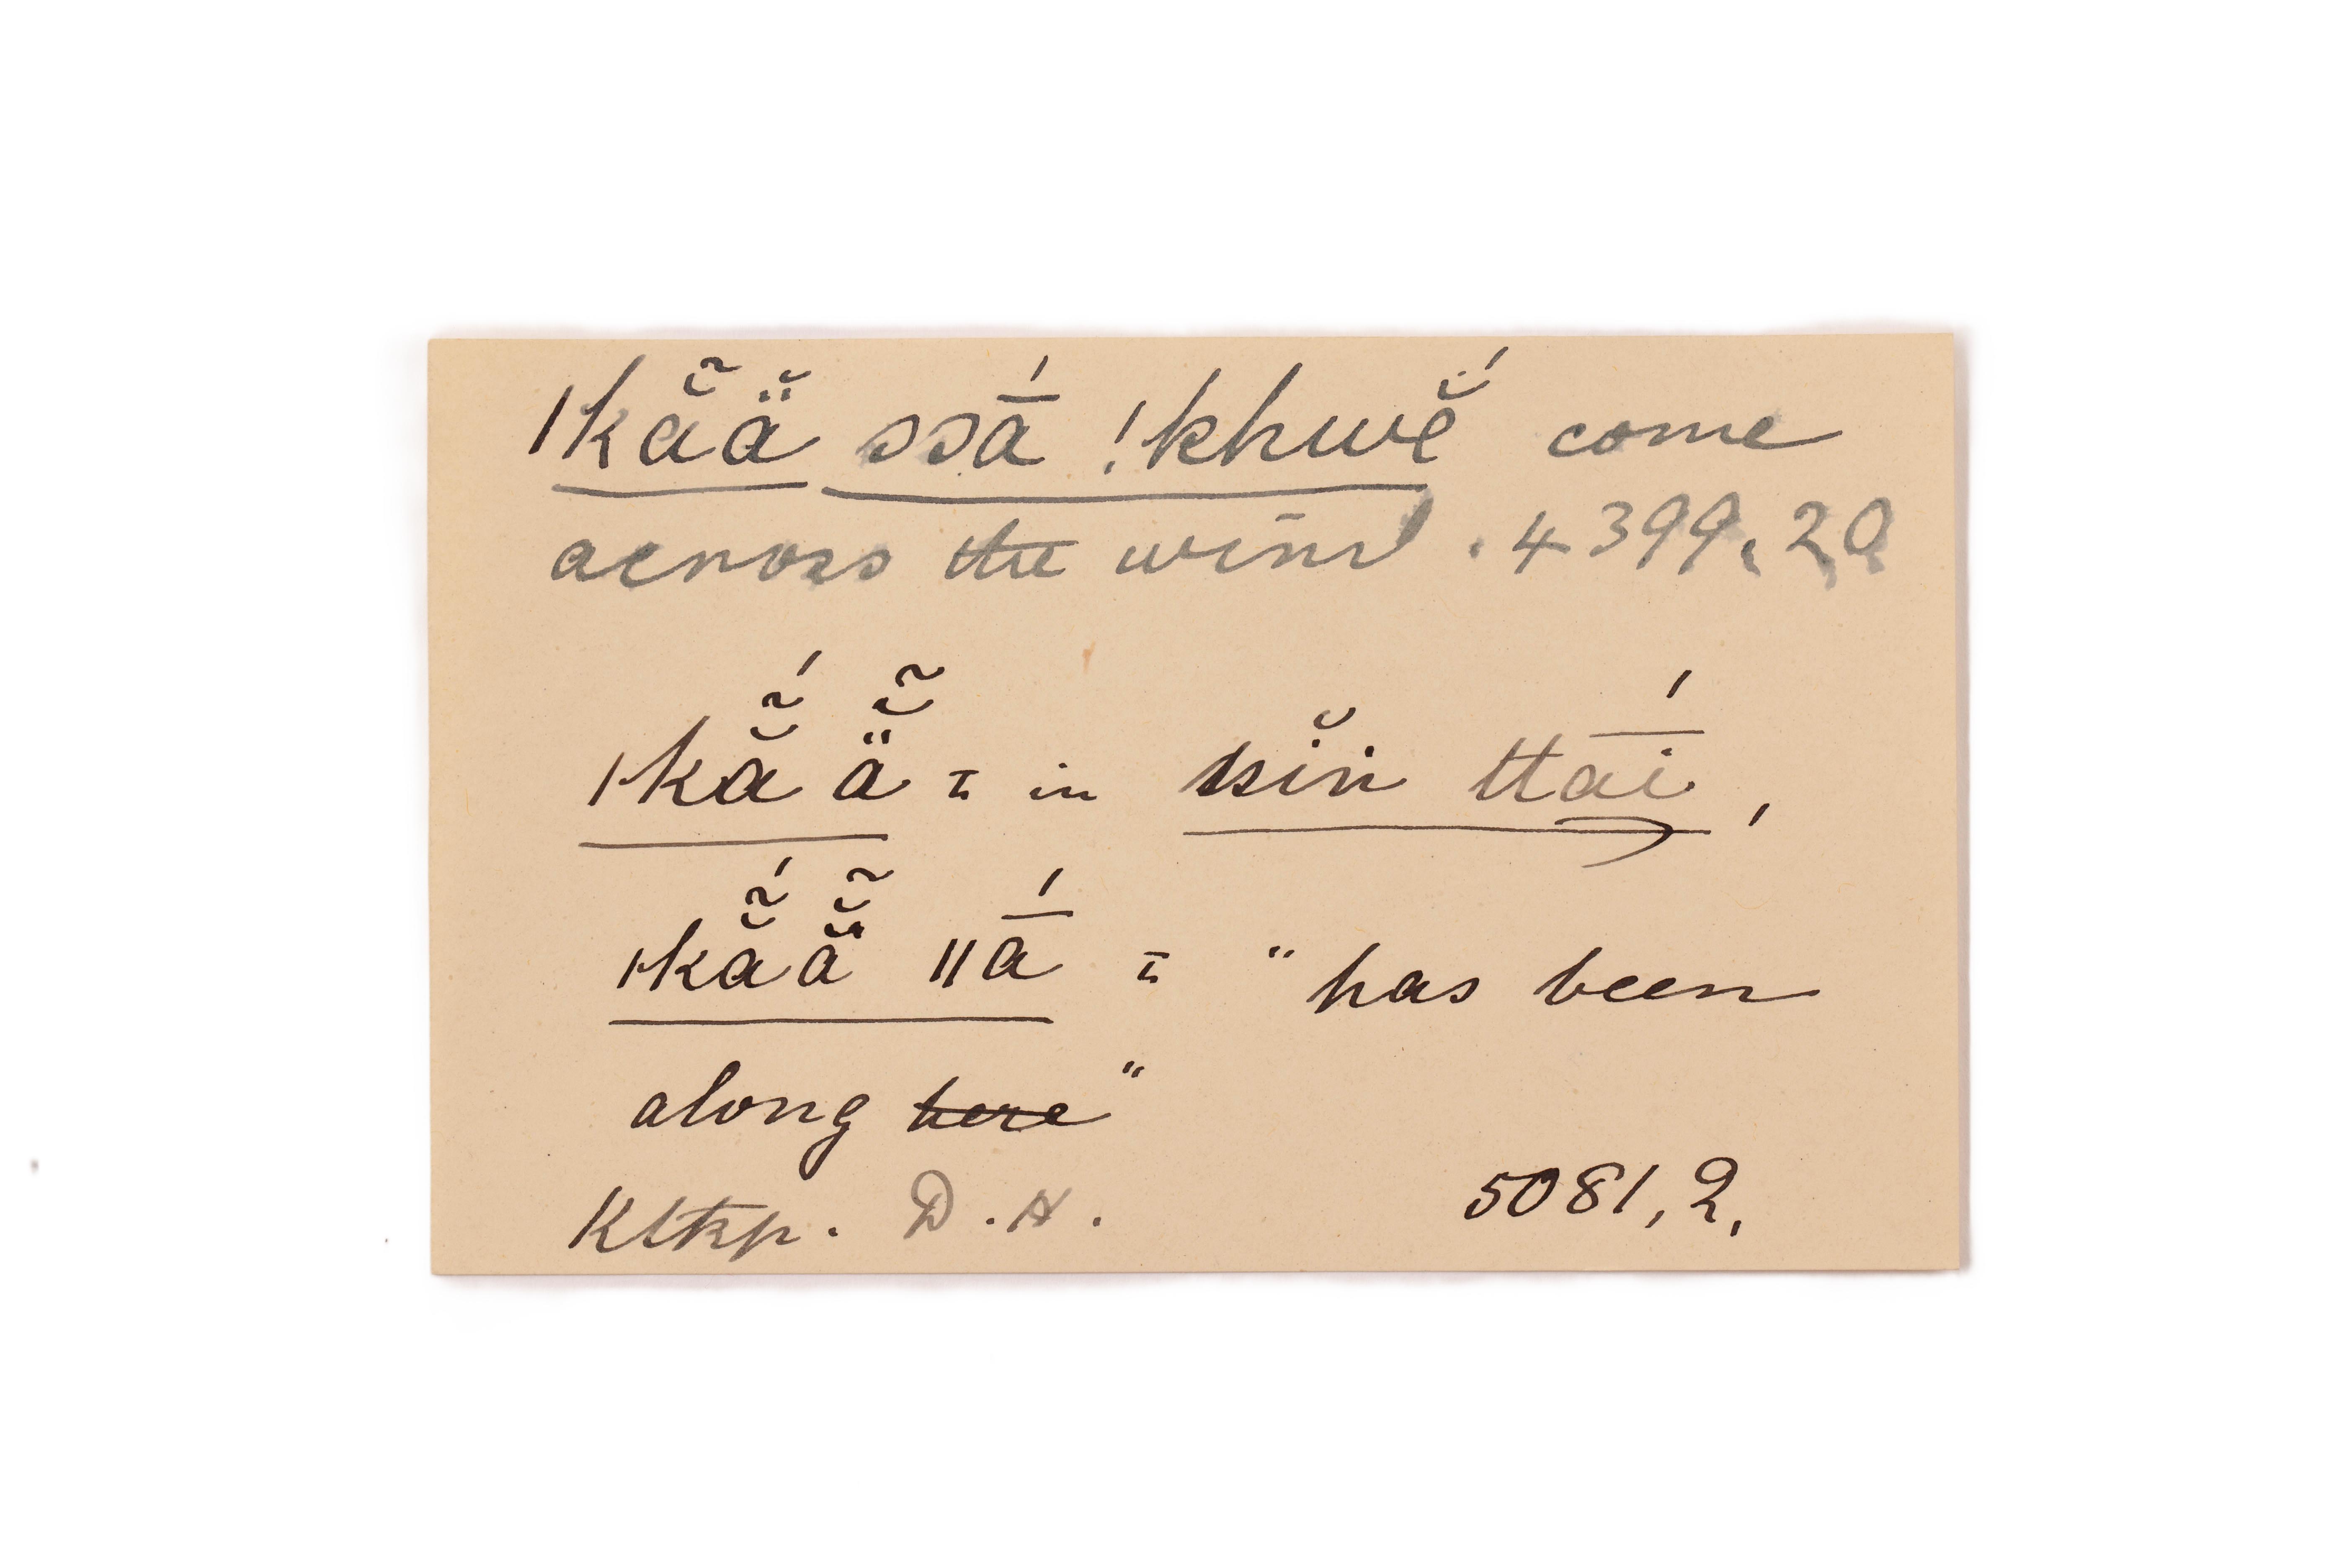 ǀkã̆ä̆ ssā́ !khwĕ́ come
across the wind. 4399, 20
ǀkã̆́ ä̮̃̆ = in sĭn ttāí,
ǀkã̆́ä̃̆ ǁā́ = "has been
along here"
Kltkp. D.H. 5081,2.